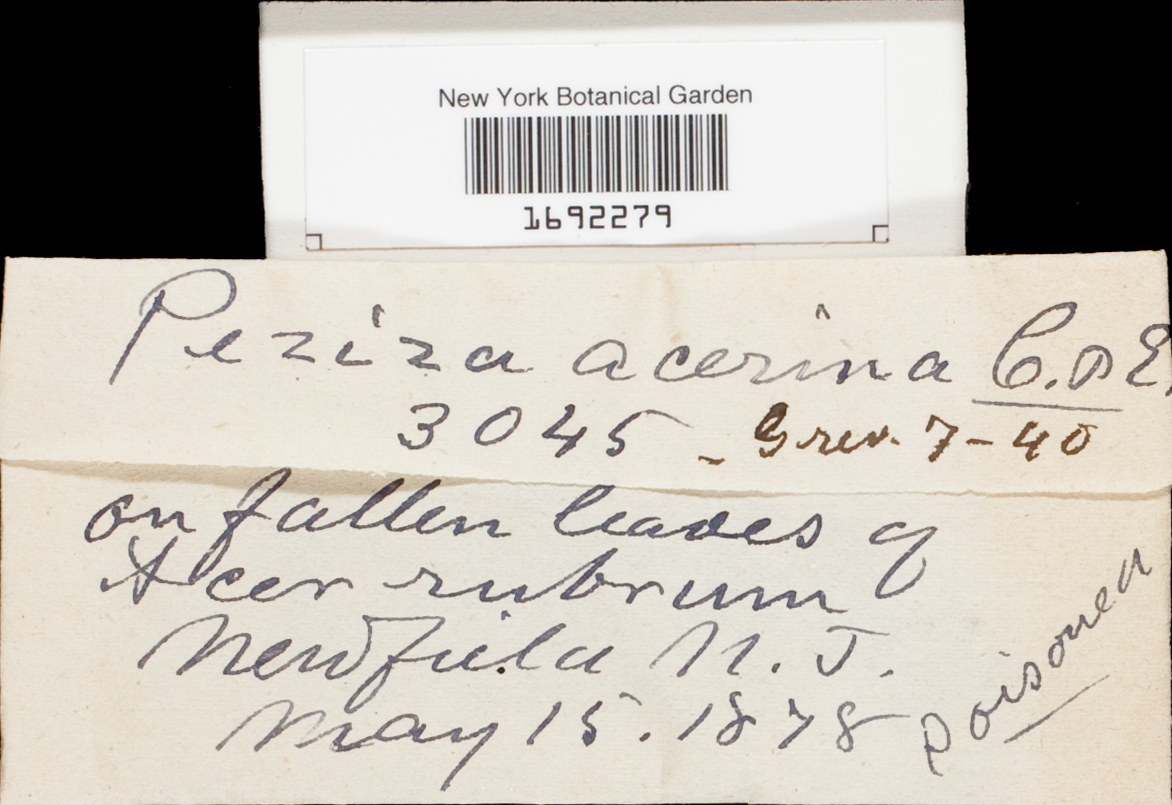 New York Botanical Garden
1692279
Peziza acerina C. & E.
3045 - Grev. 7-40
on fallen leaves of
Acer rubrum
Newfield N. J.
May 15. 1878
Poisoned